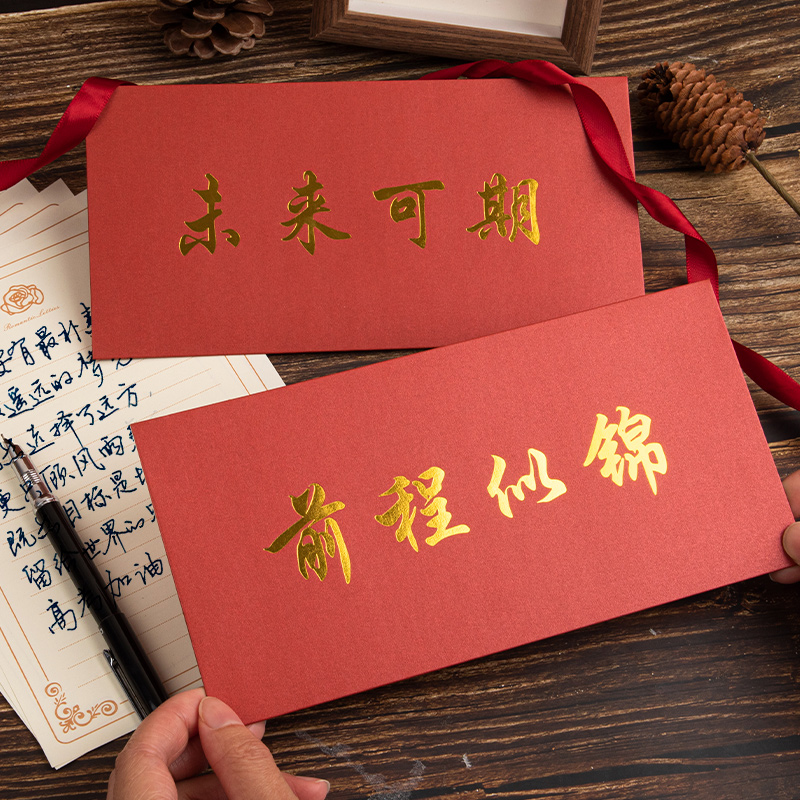 未来可期
前程似锦
Romantic Letters
有最朴
遥远的梦
选择了远方
顾风雨
目标是
留给世界的
高考加油